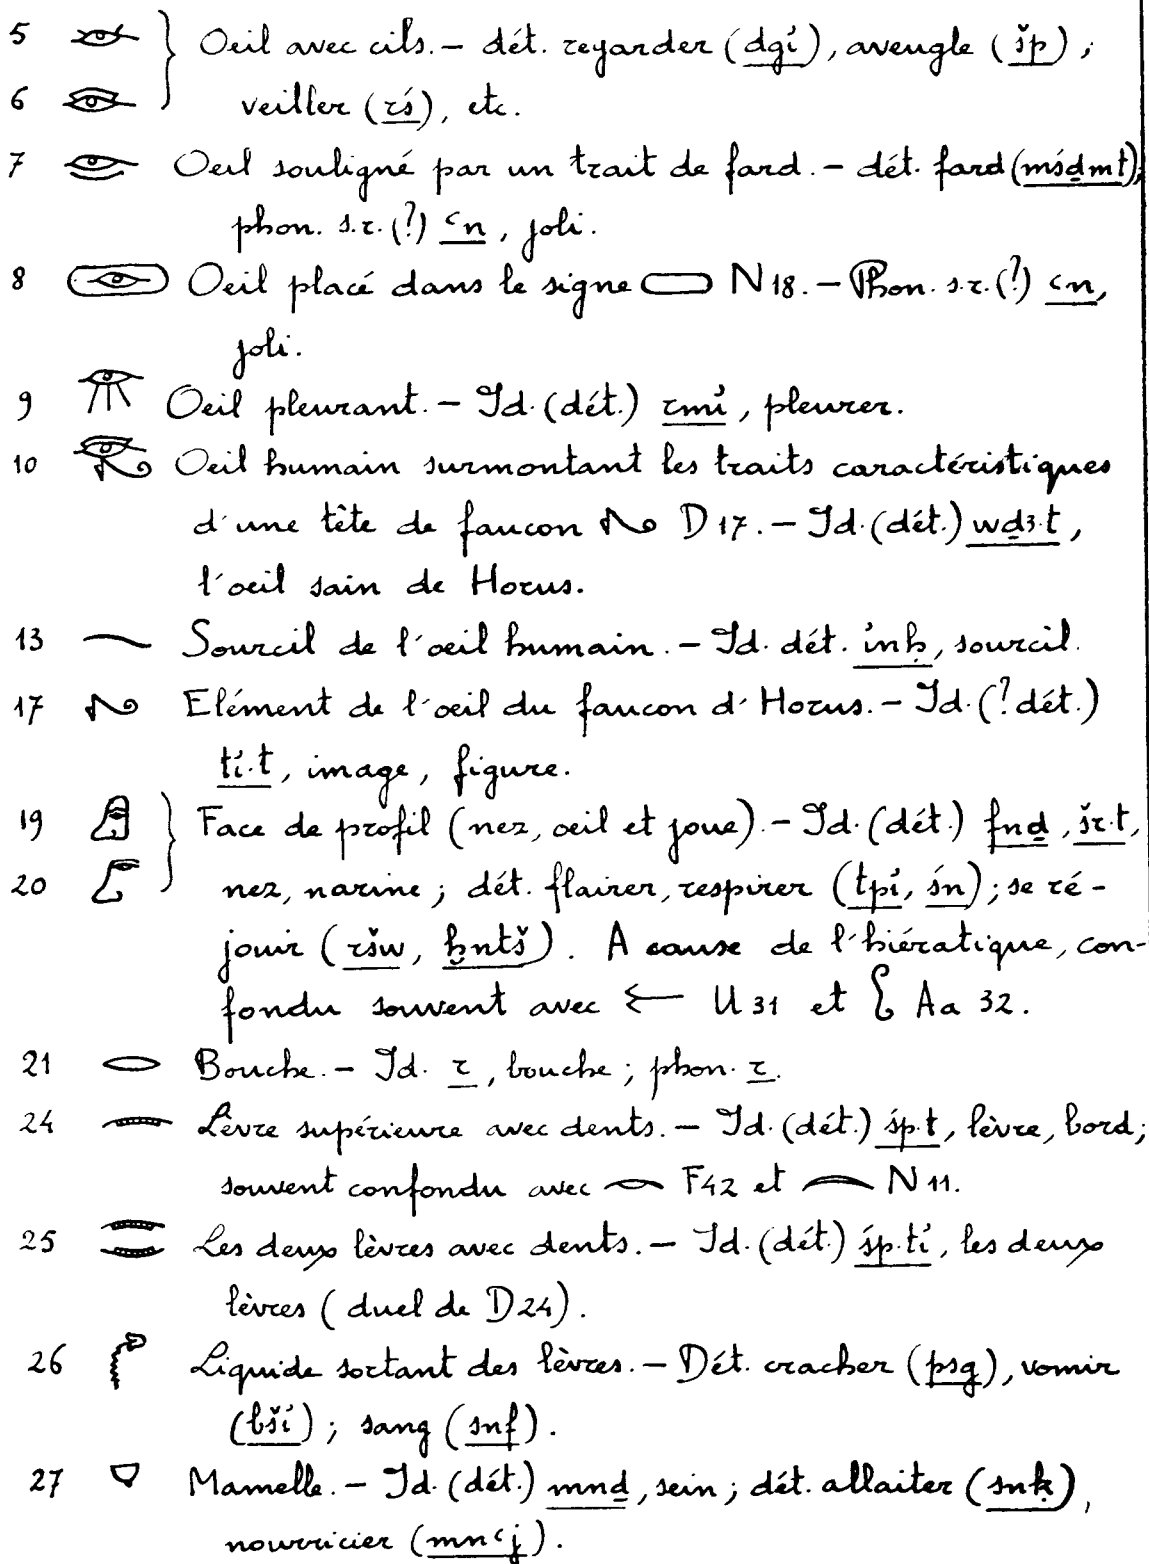 5 } Oeil avec cils. – dét. regarder (dgἰ), aveugle (šp) ;
6 } veiller (rś), etc.
7 Oeil souligné par un trait de fard. – dét. fard (mśḏmt),
phon. s.r. (?) ꜥn, joli.
8 Oeil placé dans le signe N18. – Phon. s.r. (?) ꜥn,
joli.
9 Oeil pleurant. – Id. (dét.) rmἰ, pleurer.
10 Oeil humain surmontant les traits caractéristiques
d'une tête de faucon D17. – Id. (dét.) wḏꜣ.t,
l'oeil sain de Horus.
13 Sourcil de l'oeil humain. – Id. dét. ἰnḥ, sourcil.
17 Elément de l'oeil du faucon d'Horus. – Id. (? dét.)
tἰ.t, image, figure.
19 } Face de profil (nez, oeil et joue). – Id. (dét.) fnḏ, šr.t,
20 } nez, narine ; dét. flairer, respirer (tpἰ, śn) ; se ré-
jouir (ršw, ḫntš). A cause de l'hiératique, con-
fondu souvent avec U31 et Aa 32.
21 Bouche. – Id. r, bouche ; phon. r.
24 Lèvre supérieure avec dents. – Id. (dét.) śp.t, lèvre, bord ;
souvent confondu avec F42 et N11.
25 Les deux lèvres avec dents. – Id. (dét.) śp.tἰ, les deux
lèvres (duel de D24).
26 Liquide sortant des lèvres. – Dét. cracher (psg), vomir
(bšἰ) ; sang (snf).
27 Mamelle. – Id. (dét.) mnḏ, sein ; dét. allaiter (snḳ),
nourricier (mnꜥj).